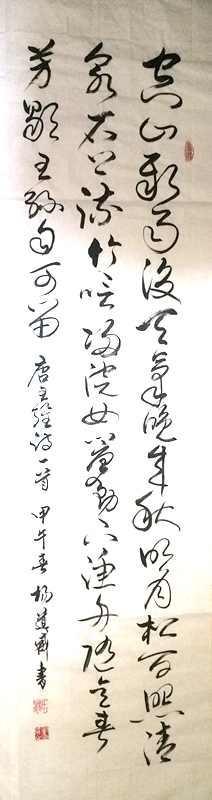 空山新雨後天氣晚來秋明月松間照清
泉石上流竹喧歸浣女蓮動下漁舟隨意春
芳歇王孫自可留 唐王維詩一首 甲午春 楊 書